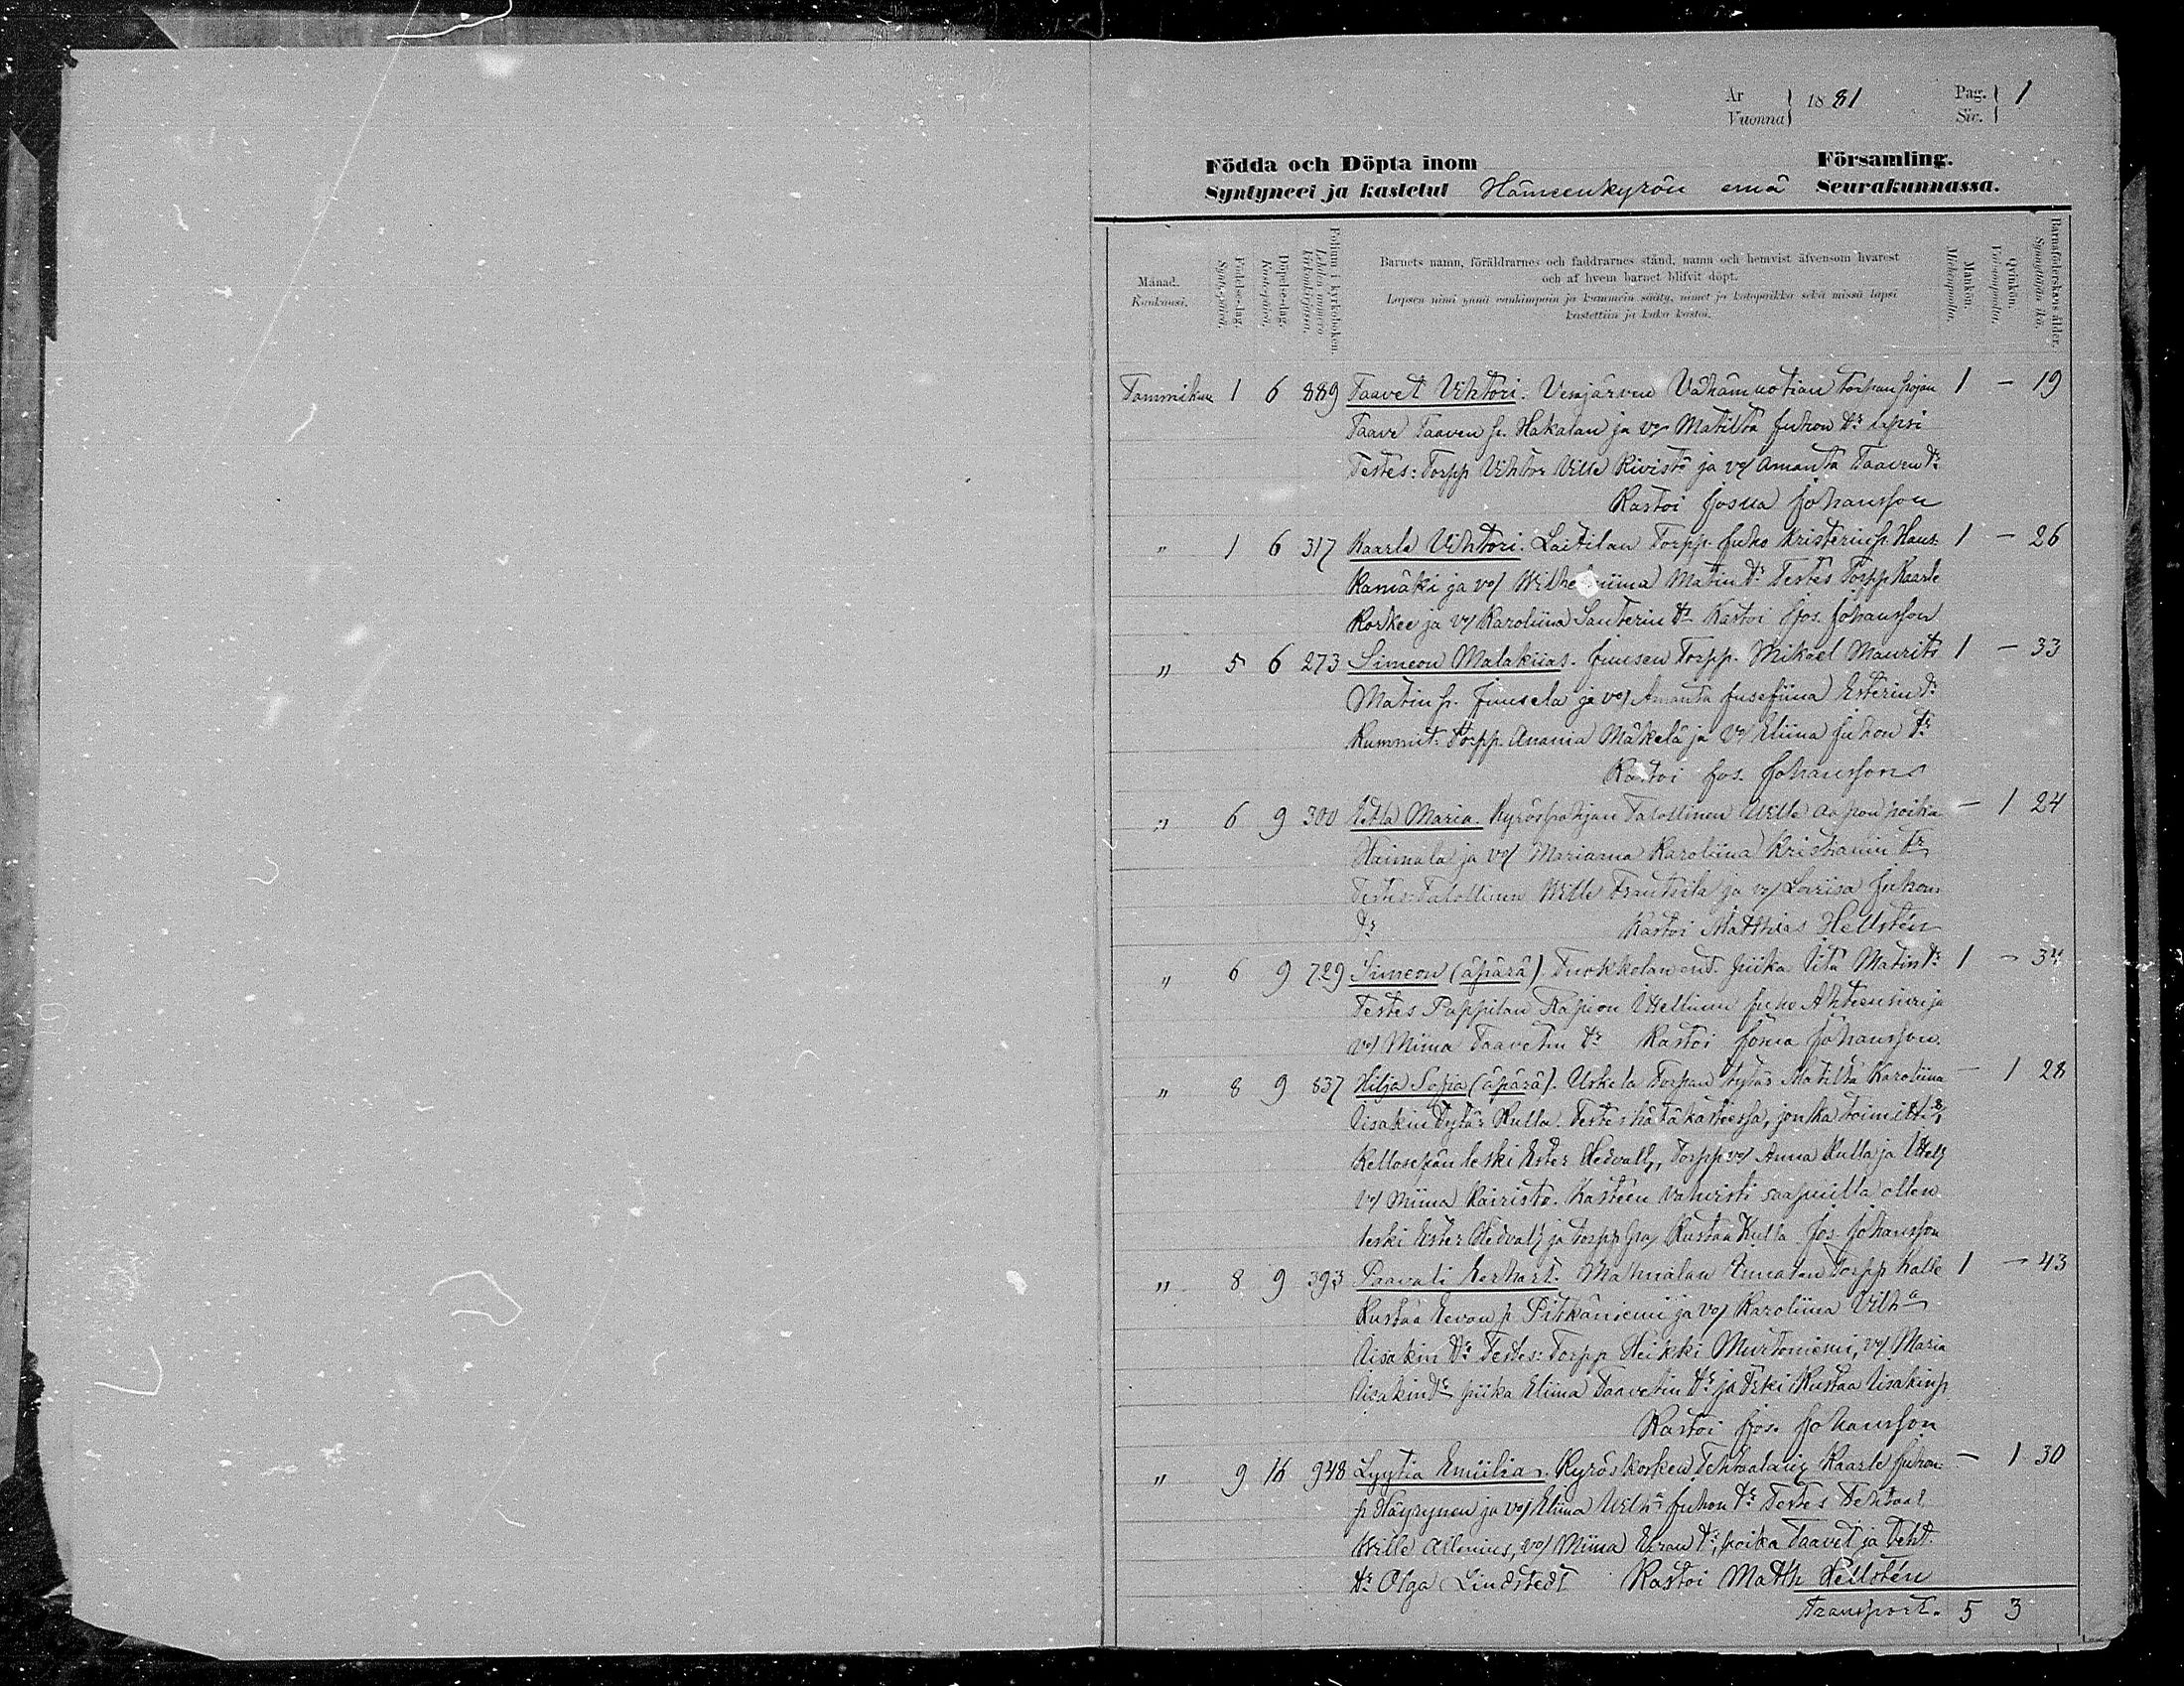 År
Vuonna } 1881 Pag.
Siv. } 1
Födda och Döpta inom Församling.
Syntyneet ja kastetut Hämeenkyrön emä Seurakunnassa.
Månad.
Kuukausi.
Födelse-dag.
Syntypäivä.
Döpelse-dag.
Kastepäivä.
Folium i kyrkoboken.
Lehden numero kirkonkirjassa.
Barnets namn, föräldrarnes och faddrarnes stånd, namn och hemvist äfvensom hvarest
och af hvem barnet blifvit döpt.
Lapsen nimi ynnä vanhimpain ja kummein sääty, nimet ja kotopaikka sekä missä lapsi
kastettiin ja kuka kastoi.
Mankön.
Miehenpuolta.
Qvinkön.
Vaimonpuolta.
Barnaföderskans ålder.
Synnyttäjän ikä.
Tammikuu 1 6 889 Taavet Vihtori. Vesajärven Vähämuotian torpan pojan 1 — 19
Taave Taaven p. Hakalan ja vo/ Matilta Juhon tr lapsi
Testes: Torpp Vihtor Ville Kivistö ja vo/ Amanta Taaven tr
Kastoi Josua Johansson
" 1 6 317 Kaarle Vihtori. Laitilan Torpp. Juho Kristerin p. Haus- 1 — 26
kamäki ja vo/ Wilhelmiina Matin tr Testes Torpp Kaarle
Korkee ja vo/ Karoliina Santerin tr Kastoi Jos. Johansson
" 5 6 273 Simeon Malakias. Juusen Torpp. Mikael Maurits 1 — 33
Matin p. Juusela ja vo/ Amanta Jusefiina Esterin tr
Kummit: Torpp. Anania Mäkelä ja vo/ Eliina Juhon tr
Kastoi Jos. Johansson
" 6 9 300 Maria. Kyröspohjan Talollinen Wille Aapon poika — 1 24
Haimala ja vo/ Mariaana Karoliina Kristianin tr
Testes: Talollinen Wille Frantsila ja vo/ Loviisa Juhon
tr Kastoi Matthias Hellstén
" 6 9 729 Simeon (äpärä). Turkkolan ent. piika Iita Matin tr 1 — 34
Testes Pappilan Rapion Itsellinen Juho Ahteensivu ja
vo/ Miina Taavetin tr Kastoi Josua Johansson.
" 8 9 837 Hilja Sofia (äpärä). Uskela Torpan tytär Matilta Karoliina — 1 28
Iisakin tytär Kulla. Testes hätäkasteessa, jonka toimitti
Kellosepän leski Ester Hedvall, Torpp vo/ Anna Kulla ja Itsel
vo/ Miina Kairisto. Kasteen vahvisti saapuilla ollen
leski Ester Hedvall ja torpp Kustaa Kulla Jos. Johansson
" 8 9 393 Paavali Gerhart. Mahnalan Torpp Kalle 1 — 43
Kustaa Eevan p Pitkäniemi ja vo/ Karoliina Vilha
Iisakin tr Testes: Torpp Heikki Murtoniemi, vo/ Maria
Iisakin tr piika Eliina Taavetin tr ja Kustaa Iisakin p
Kastoi Jos. Johansson
" 9 16 948 Lyytia Emiilia. Kyröskosken Tehtaalainen Kaarle Juhon- — 1 30
p Häyrynen ja vo/ Eliina Wilha Juhon tr Testes Tehtaal
Wille Allenius, vo/ Miina tr, poika Taavet ja teht.
tr Olga Lindstedt Kastoi Matth Hellstén
Transport. 5 3